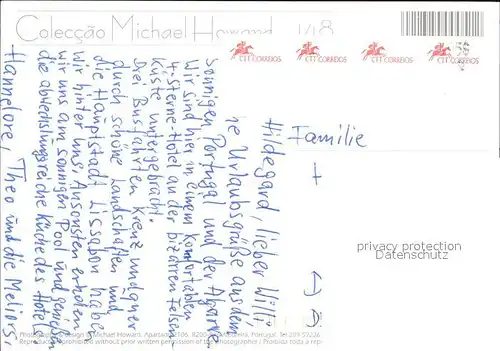 Colecção Michael Howard 148
CTT CORREIOS CTT CORREIOS CTT CORREIOS CTT CORREIOS
Hildegard, lieber Willi
ne Urlaubsgrüße aus dem
sonnigen Portugal und der Algarve.
Wir sind hier in einem komfortablen
4-Sterne-Hotel an der bizarren Felsen-
küste untergebracht.
Drei Busfahrten kreuz und quer
durch schöne Landschaften und
die Hauptstadt Lissabon haben
wir hinter uns. Ansonsten erholen
wir uns am sonnigen Pool und genießen
die abwechslungsreiche Küche des Hotels.
Hannelore, Theo und die Meliors,
Familie
+
privacy protection
by veikkos.com
Photography & Design © Michael Howard, Apartado 2106, 8200 Portugal. Tel 289
Reproduction prohibited without prior written permission of the photographer / Proibida toda a rep